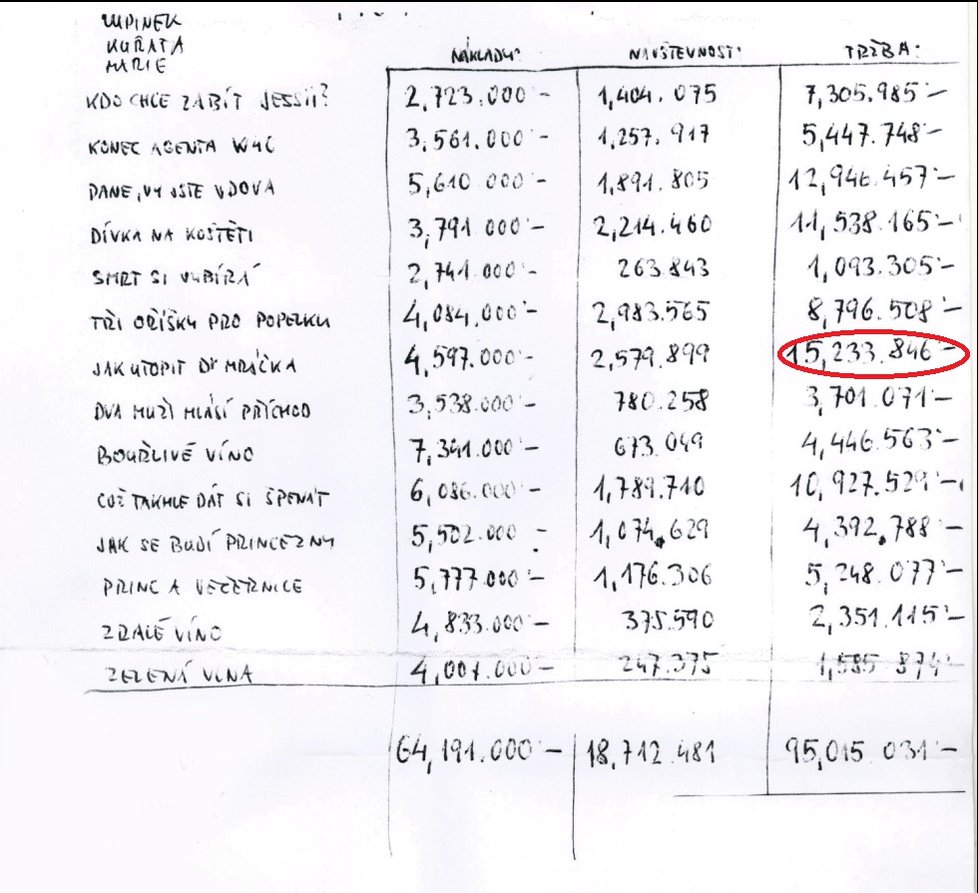 LUPINEK
KUŘATA
MARIE
NÁKLADY: NÁVŠTĚVNOST: TRŽBA:
KDO CHCE ZABÍT JESSII? 2,723.000·– 1,404.075 7,305.985·–
KONEC AGENTA W4C 3,561.000·– 1,257.917 5,447.748·–
DANE, VY JSTE VDOVA 5,610 000·– 1,891.805 12,946.457·–
DÍVKA NA KOŠTĚTI 3,791.000·– 2,214.460 11,538.165·–
SMRT SI VYBÍRÁ 2,741.000·– 263.843 1,093.305·–
TŘI OŘÍŠKY PRO POPELKU 4,084.000·– 2,983.565 8,796.508·–
JAK UTOPIT DR MRÁČKA 4,597.000·– 2,579.899 15,233.846·–
DVA MUŽI HLÁSÍ PŘÍCHOD 3,538.000·– 780.258 3,701.071·–
BOUŘLIVÉ VÍNO 7,341.000·– 673.049 4,446.563·–
COŽ TAKHLE DÁT SI ŠPENÁT 6,086.000·– 1,789.710 10,927.529·–
JAK SE BUDÍ PRINCEZNY 5,502.000 – 1,074.629 4,392.788·–
PRINC A VEČERNICE 5,777.000·– 1,176.306 5,248.077·–
ZRALÉ VÍNO 4,833.000·– 375.590 2,351.115·–
ZELENÁ VLNA 4,007.000·– 247.375 1,585 874·–
64,191.000·– 18,712.481 95,015.031·–